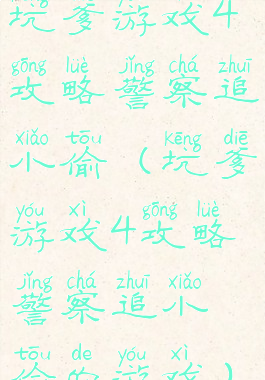 坑爹游戏4
gōng lüè jǐng chá zhuī
攻略 警察追
xiǎo tōu kēng diē
小偷（坑爹
yóu xì gōng lüè
游戏4攻略
jǐng chá zhuī xiǎo
警察追小
tōu de yóu xì
偷的游戏）